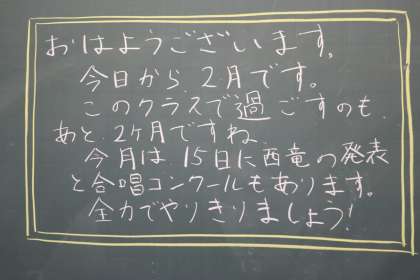 おはようございます。
今日から、2月です。
このクラスで過ごすのも、
あと、2ヶ月ですね。
今月は、15日に西竜の発表
と合唱コンクールもあります。
全力でやりきりましょう!